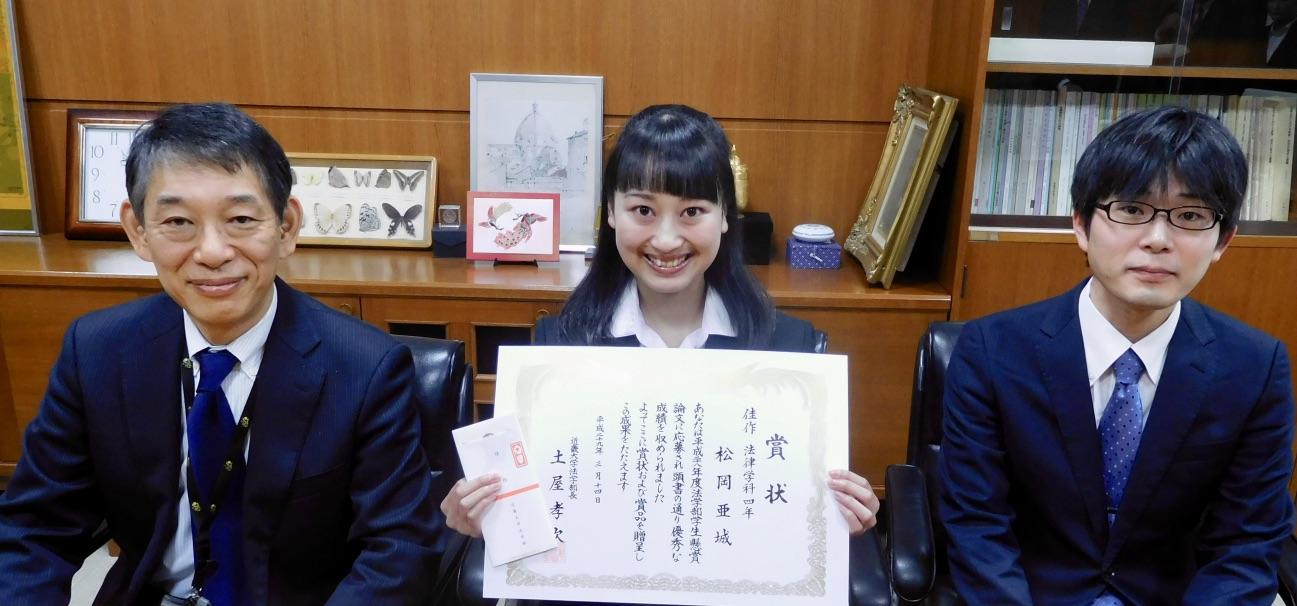 賞状
佳作 法律学科四年
松岡亜城
あなたは平成二十八年度法学部学生懸賞
論文に応募され頭書の通り優秀な
成績を収められました
よってここに賞状および賞品を贈呈し
この成果をたたえます
平成二十九年 三月十四日
近畿大学法学部長
土屋孝次
11
10
9
8
7